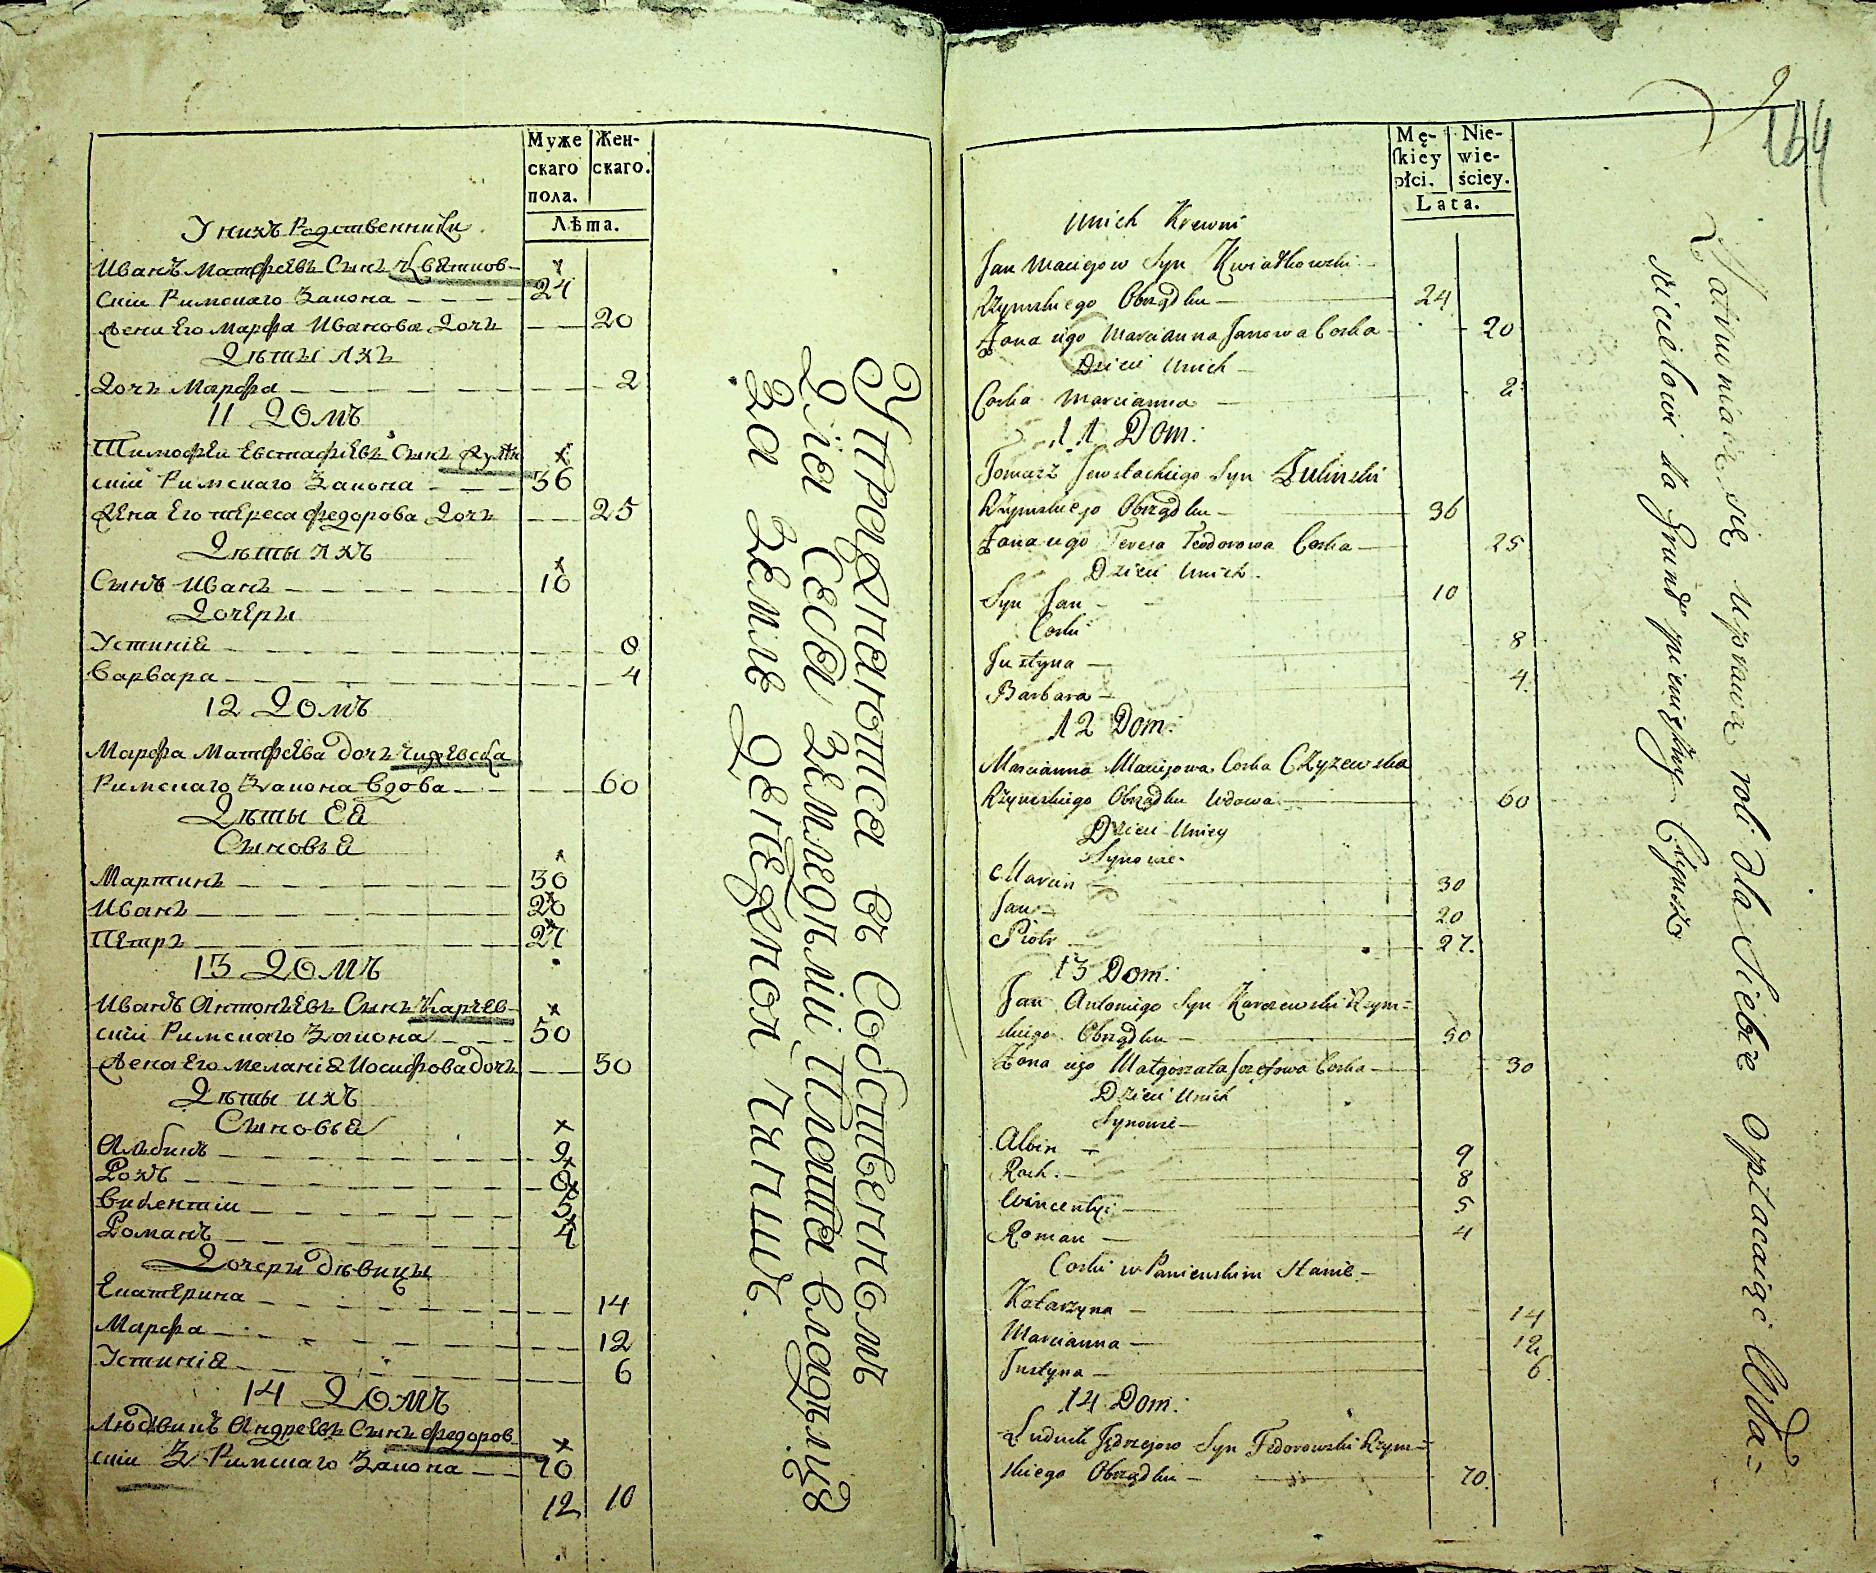 Муже
скаго
пола.
Жен-
скаго.
Лѣта.
У нихъ Родственники
Иванъ Матфеевъ Сынъ Квятков-
скiи Римскаго Закона 24
Жена Его Марфа Иванова Дочь 20
Дѣты ихъ
Дочь Марфа 2
11 Домъ
Тимофеи Евстафіевъ Сынъ Жулин
скiи Римскаго Закона 36
Жена Его Тереса Федорова Дочь 25
Дѣты ихъ
Сынъ Иванъ 10
Дочеры
Устиніа 8
Варвара 4
12 Домъ
Марфа Матфеева дочь Чижевска
Римскаго Закона вдова 60
Дѣты Еа
Сыновьа
Мартинъ 30
Иванъ 20
Петръ 27
13 Домъ
Иванъ Антоньевъ Сынъ Карчев-
скiи Римскаго Закона 50
Жена Его Меланіа Иосифова дочь 30
Дѣты ихъ
Сыновьа
Альбинъ 9
Рохъ 8
Викентіи 5
Романъ 4
Дочеры дѣвицы
Екатерина 14
Марфа 12
Устиніа 6
14 Домъ
Людвикъ Андреевъ Сынъ Федоров-
скiи Римскаго Закона 70
12 10
Упражнаютса въ Собственномъ
Длiа Себа Земледѣліи, Плата владѣлца
За Землю Денежной Чиншъ.
Mę-
skiey
płci.
Nie-
wie-
ściey.
Lata.
164
Unich Krewni
Jan Maciejow Syn Kwiatkowski
Rzymskiego Obrządku 24
Żona iego Marcianna Janowa Corka 20
Dzieci Unich
Corka Marcianna 2
11 Dom:
Tomasz Jewstachiego Syn Żulinski
Rzymskiego Obrządku 36
Żona iego Teresa Teodorowa Corka 25
Dzieci Unich
Syn Jan 10
Corki
Justyna 8
Barbara 4
12 Dom:
Marcianna Maciejowa Corka Czyzewska
Rzymskiego Obrządku Wdowa 60
Dzieci Uniey
Synowie
Marcin 30
Jan 20
Piotr 27
13 Dom:
Jan Antoniego Syn Karczewski Rzym=
skiego Obrządku 50
Żona iego Małgorzata Jozefowa Corka 30
Dzieci Unich
Synowie
Albin 9
Roch 8
Wincenty 5
Roman 4
Corki w Panienskim Stanie
Katarzyna 14
Marcianna 12
Justyna 6
14 Dom:
Ludwik Jędrzejow Syn Fedorowski Rzym=
skiego Obrządku 70
się uprawą roli dla Siebie Opłacaiąc Wła=
scicielowi za Grund pieniężny Czynsz